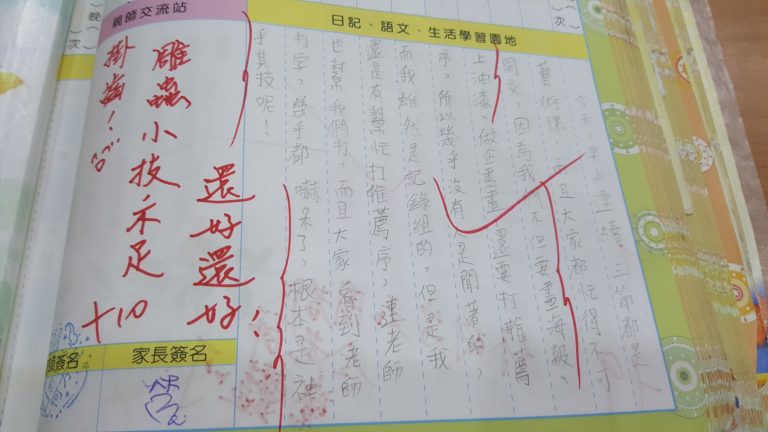 親師交流站
日記、語文、生活學習園地
今天,早上連續三節都是
藝術課,而且大家都忙得不可
開交,因為我們不但要畫海報、
上油漆、做企畫書,還要打推薦
序,所以幾乎沒有人是閒著的,
而我雖然是記錄組的,但是我
還是有幫忙打推薦序,連老師
也幫我們打,而且大家看到老師
打字,幾乎都嚇呆了,根本是神
乎其技呢!
還好還好!
雕蟲小技不足
掛齒!
+10
家長簽名
師簽名
晚
次
次